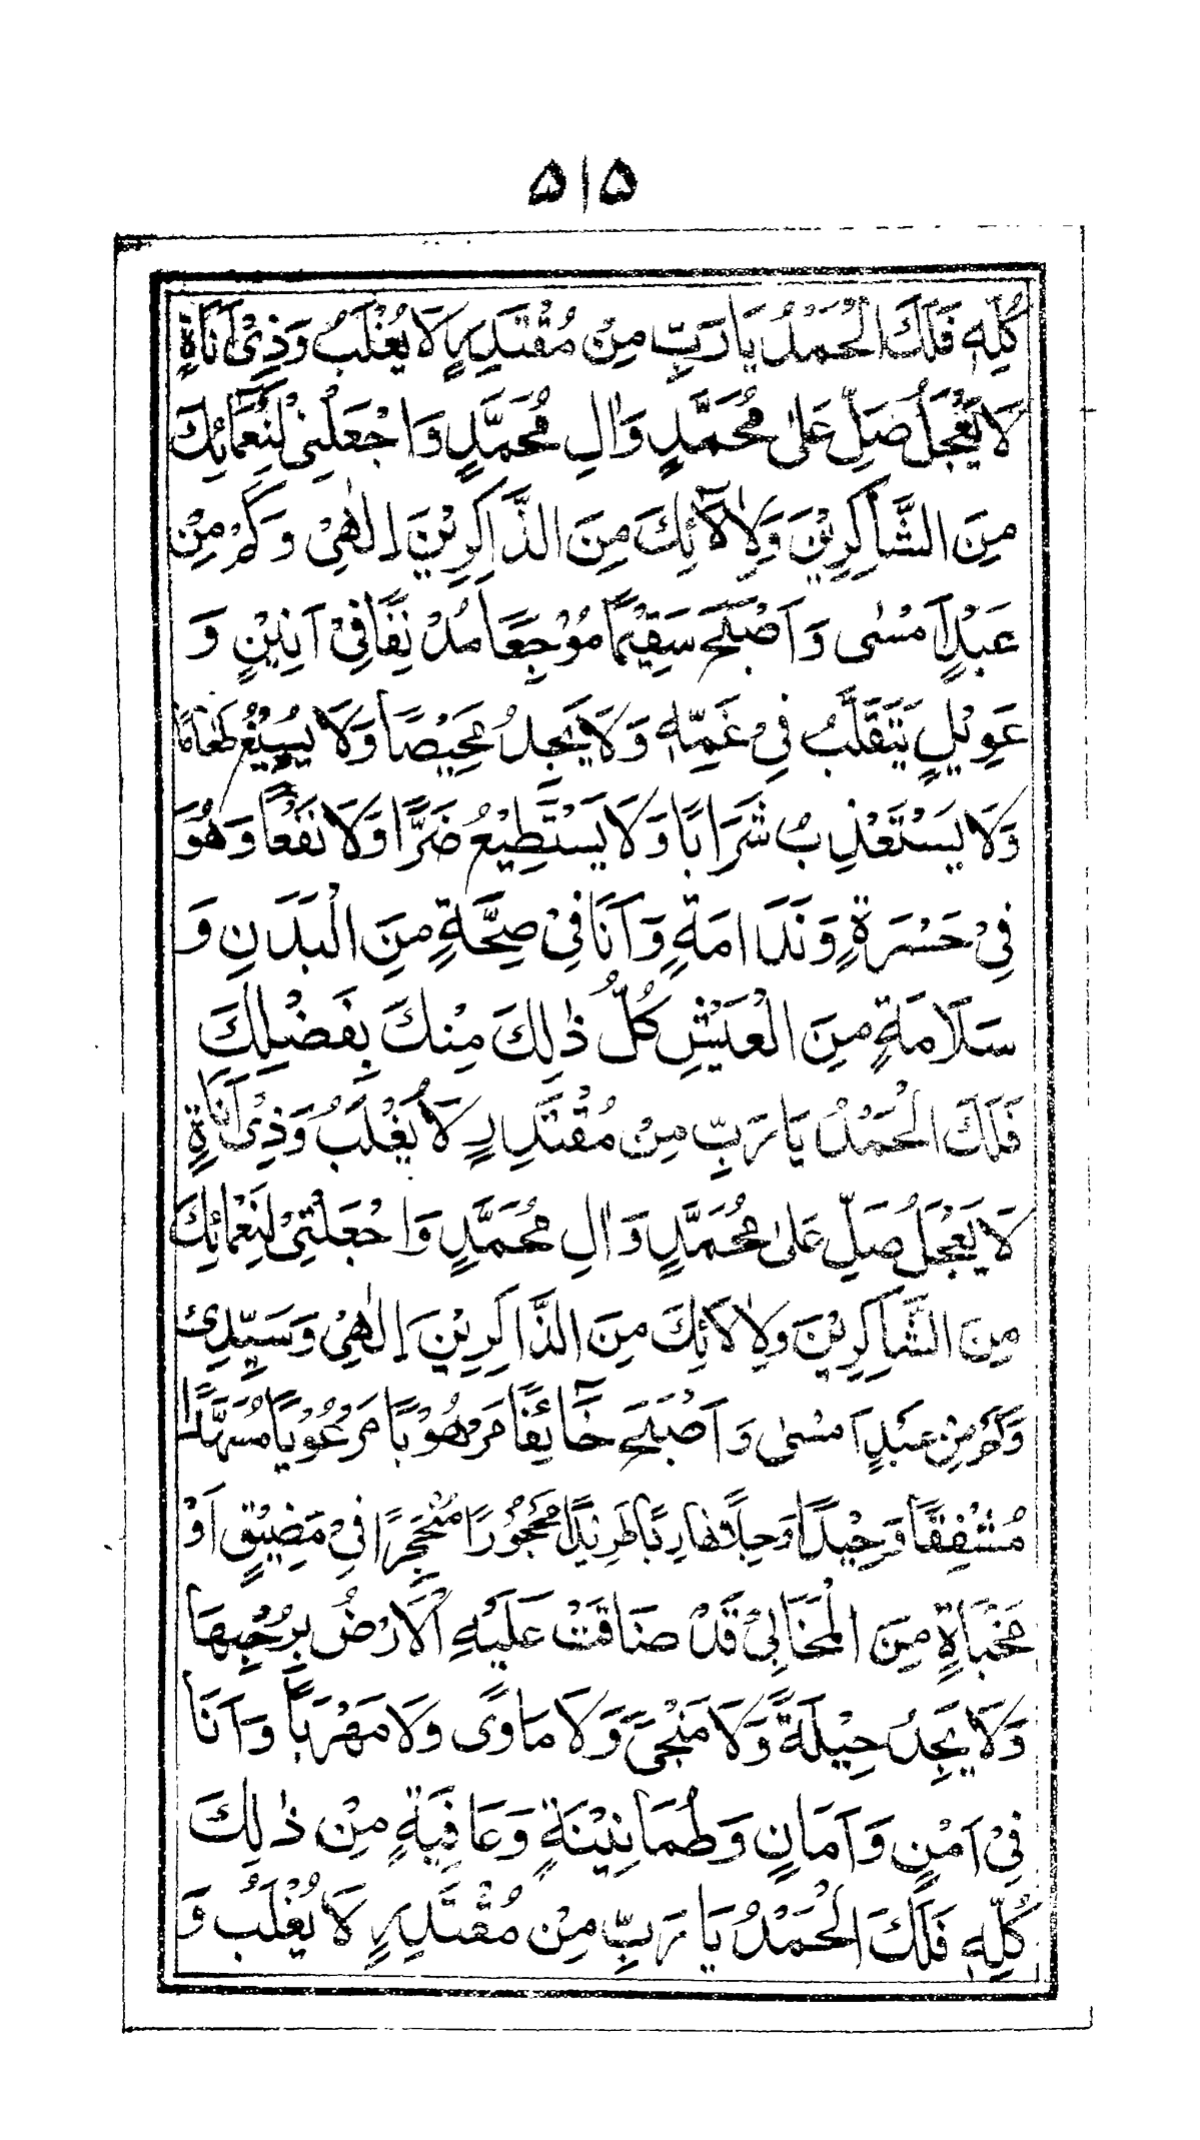 ۵۱۵
كُلِّهٖ فَلَكَ الْحَمْدُ يَا رَبِّ مِنْ مُقْتَدِرٍ لَا يُغْلَبُ وَذِيْ اَنَاةٍ
لَا يَعْجَلُ صَلِّ عَلٰى مُحَمَّدٍ وَاٰلِ مُحَمَّدٍ وَاجْعَلْنِيْ لِنَعْمَائِكَ
مِنَ الشَّاكِرِيْنَ وَلِاٰلَآئِكَ مِنَ الذَّاكِرِيْنَ اِلٰهِيْ وَكَمْ مِنْ
عَبْدٍ اَمْسٰى وَاَصْبَحَ سَقِيْمًا مُوْجَعًا مُدْنِفًا فِيْ اَنِيْنٍ وَ
عَوِيْلٍ يَتَقَلَّبُ فِيْ غَمِّهٖ وَلَا يَجِدُ مَحِيْصًا وَلَا يُسِيْغُ طَعَامًا
وَلَا يَسْتَعْذِبُ شَرَابًا وَلَا يَسْتَطِيْعُ ضَرًّا وَلَا نَفْعًا وَهُوَ
فِيْ حَسْرَةٍ وَنَدَامَةٍ وَاَنَا فِيْ صِحَّةٍ مِنَ الْبَدَنِ وَ
سَلَامَةٍ مِنَ الْعَيْشِ كُلُّ ذٰلِكَ مِنْكَ بِفَضْلِكَ
فَلَكَ الْحَمْدُ يَا رَبِّ مِنْ مُقْتَدِرٍ لَا يُغْلَبُ وَذِيْ اَنَاةٍ
لَا يَعْجَلُ صَلِّ عَلٰى مُحَمَّدٍ وَاٰلِ مُحَمَّدٍ وَاجْعَلْنِيْ لِنَعْمَائِكَ
مِنَ الشَّاكِرِيْنَ وَلِاٰلَائِكَ مِنَ الذَّاكِرِيْنَ اِلٰهِيْ وَسَيِّدِيْ
وَكَمْ مِنْ عَبْدٍ اَمْسٰى وَاَصْبَحَ خَآئِفًا مَرْهُوْبًا مَرْعُوْبًا مُسَهَّدًا
مُشْفِقًا وَحِيْدًا وَجِلًا هَارِبًا طَرِيْدًا مَحْجُوْرًا مُنْحَجِرًا فِيْ مَضِيْقٍ اَوْ
مَخْبَاَةٍ مِنَ الْمَخَابِئِ قَدْ ضَاقَتْ عَلَيْهِ الْاَرْضُ بِرُحْبِهَا
وَلَا يَجِدُ حِيْلَةً وَلَا مَنْجًى وَلَا مَاوًى وَلَا مَهْرَبًا وَاَنَا
فِيْ اَمْنٍ وَاَمَانٍ وَطُمَانِيْنَةٍ وَعَافِيَةٍ مِنْ ذٰلِكَ
كُلِّهٖ فَلَكَ الْحَمْدُ يَا رَبِّ مِنْ مُقْتَدِرٍ لَا يُغْلَبُ وَ